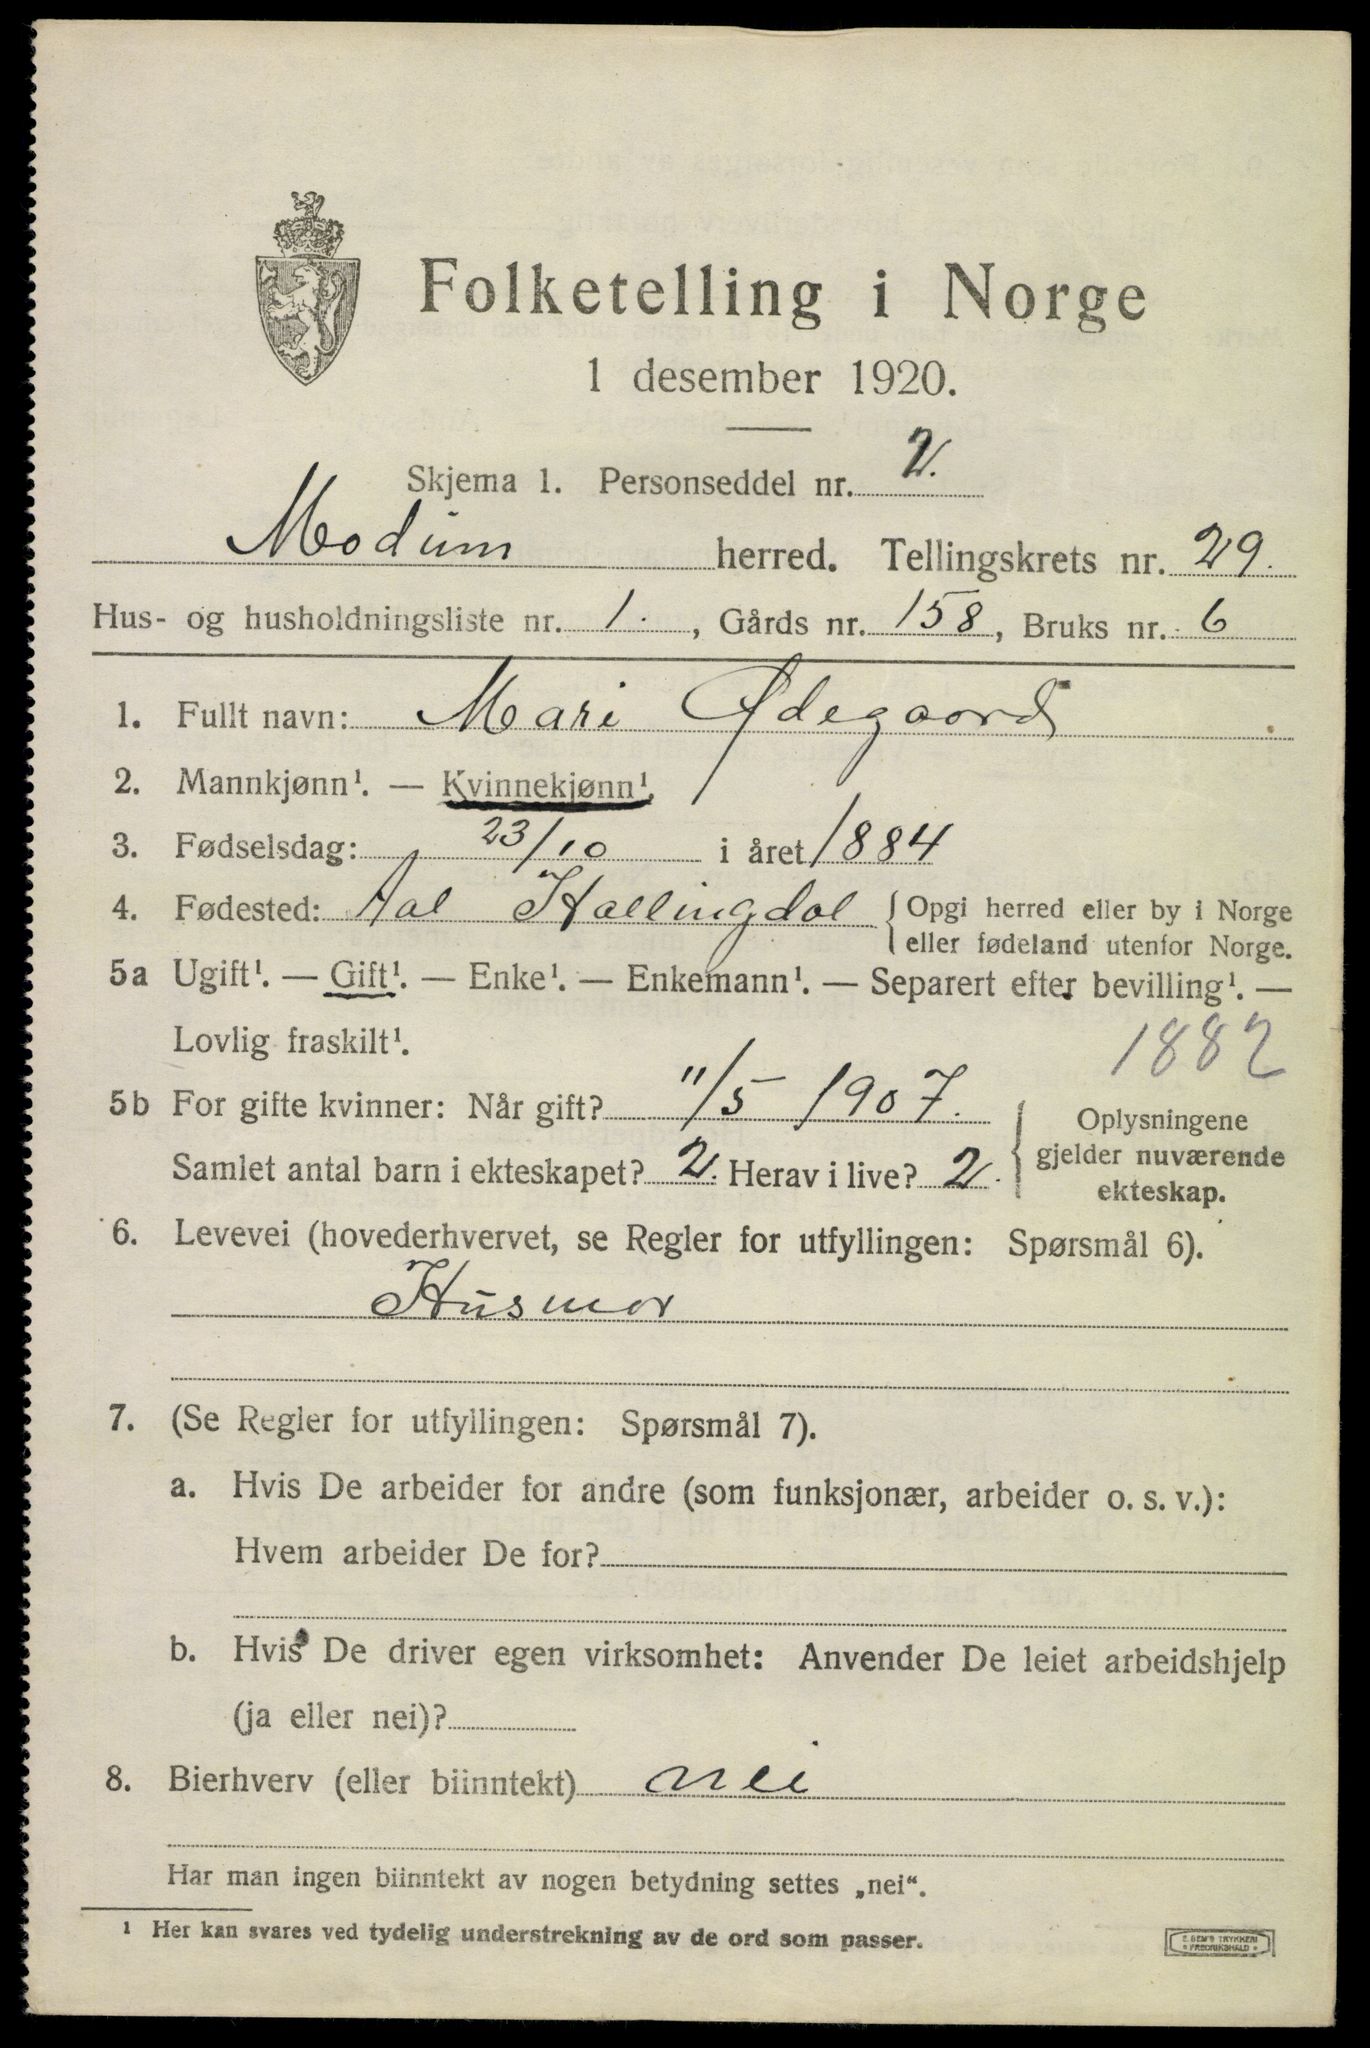 Folketelling i Norge
1 desember 1920.
Skjema 1. Personseddel nr. 2.
Modum herred. Tellingskrets nr. 29.
Hus- og husholdningsliste nr. 1. , Gårds nr. 158, Bruks nr. 6
1. Fullt navn: Mari Ødegaard
2. Mannkjønn¹. — Kvinnekjønn¹.
3. Fødselsdag: 23/10 i året 1884
4. Fødested: Aal Hallingdal { Opgi herred eller by i Norge
eller fødeland utenfor Norge.
5a Ugift¹. — Gift¹. — Enke¹. — Enkemann¹. — Separert efter bevilling¹. —
Lovlig fraskilt¹.
1882
5b For gifte kvinner: Når gift? 11/5 1907.
Samlet antal barn i ekteskapet? 2. Herav i live? 2.
Oplysningene
gjelder nuværende
ekteskap.
6. Levevei (hovederhvervet, se Regler for utfyllingen: Spørsmål 6).
Husmor
7. (Se Regler for utfyllingen: Spørsmål 7).
a. Hvis De arbeider for andre (som funksjonær, arbeider o. s. v.):
Hvem arbeider De for?
b. Hvis De driver egen virksomhet: Anvender De leiet arbeidshjelp
(ja eller nei)?
8. Bierhverv (eller biinntekt) nei
Har man ingen biinntekt av nogen betydning settes „nei“.
¹ Her kan svares ved tydelig understrekning av de ord som passer.
E. SEM'S TRYKKERI
FREDRIKSHALD